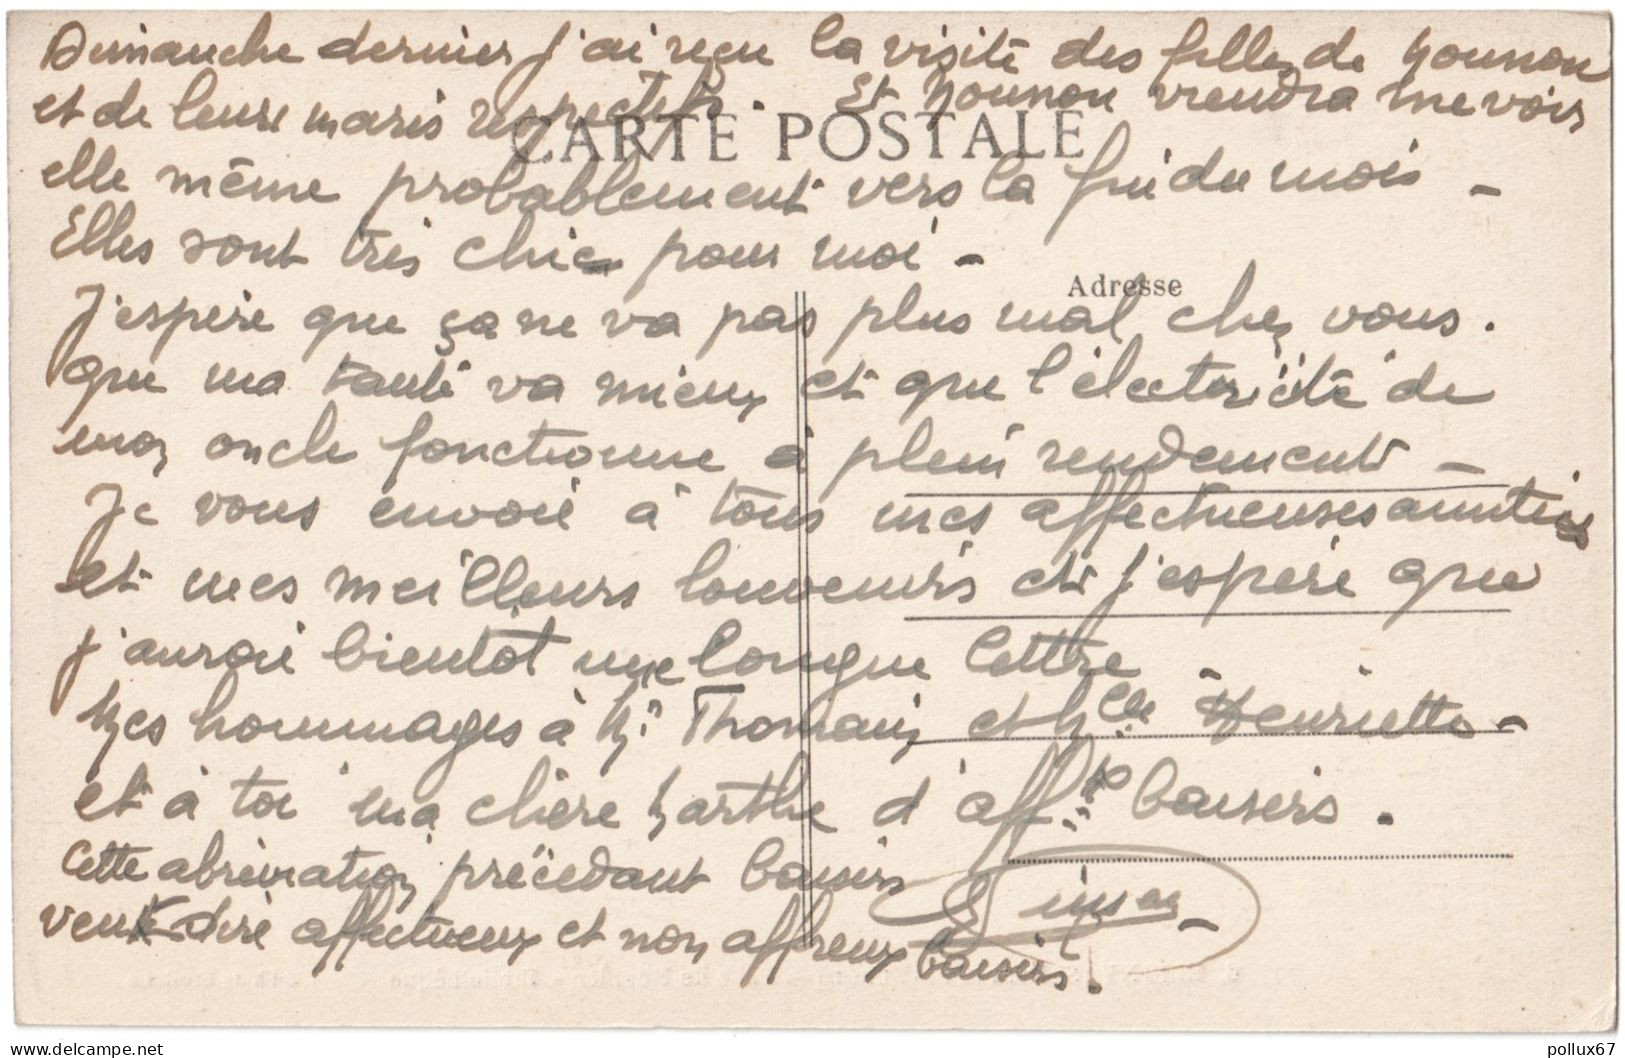 Dimanche dernier j'ai reçu la visite des filles de Nounou
et de leurs maris respectifs. Et Nounou viendra me voir
CARTE POSTALE
elle même probablement vers la fin du mois -
Elles sont très chic pour moi -
Adresse
J'espère que ça ne va pas plus mal chez vous.
que ma tante va mieux et que l'électricité de
mon oncle fonctionne à plein rendement -
Je vous envoie à tous mes affectueuses amitiés
et mes meilleurs souvenirs et j'espère que
j'aurai bientôt une longue lettre -
Mes hommages à Mr Thomain et Melle Henriette -
et à toi ma chère Marthe d'affx baisers.
Cette abréviation précédant baisers
veut dire affectueux et non affreux baisers.
delcampe.net
pollux67